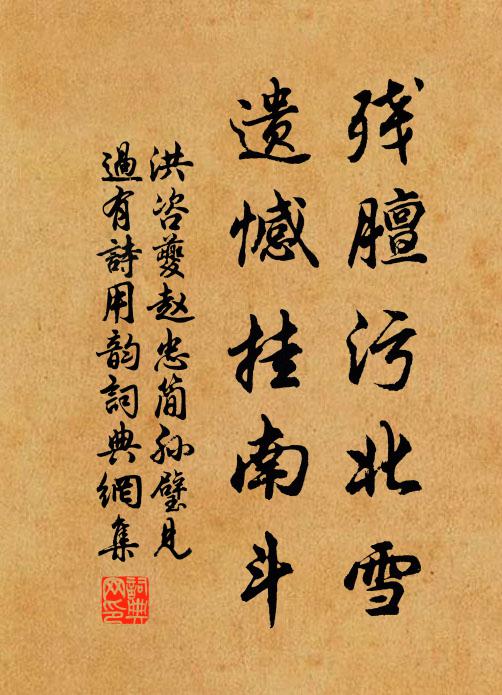 残膻污北雪
遗憾挂南斗
洪咨夔赵忠简孙璧见
過有詩用韵詞典網集
詞典网印